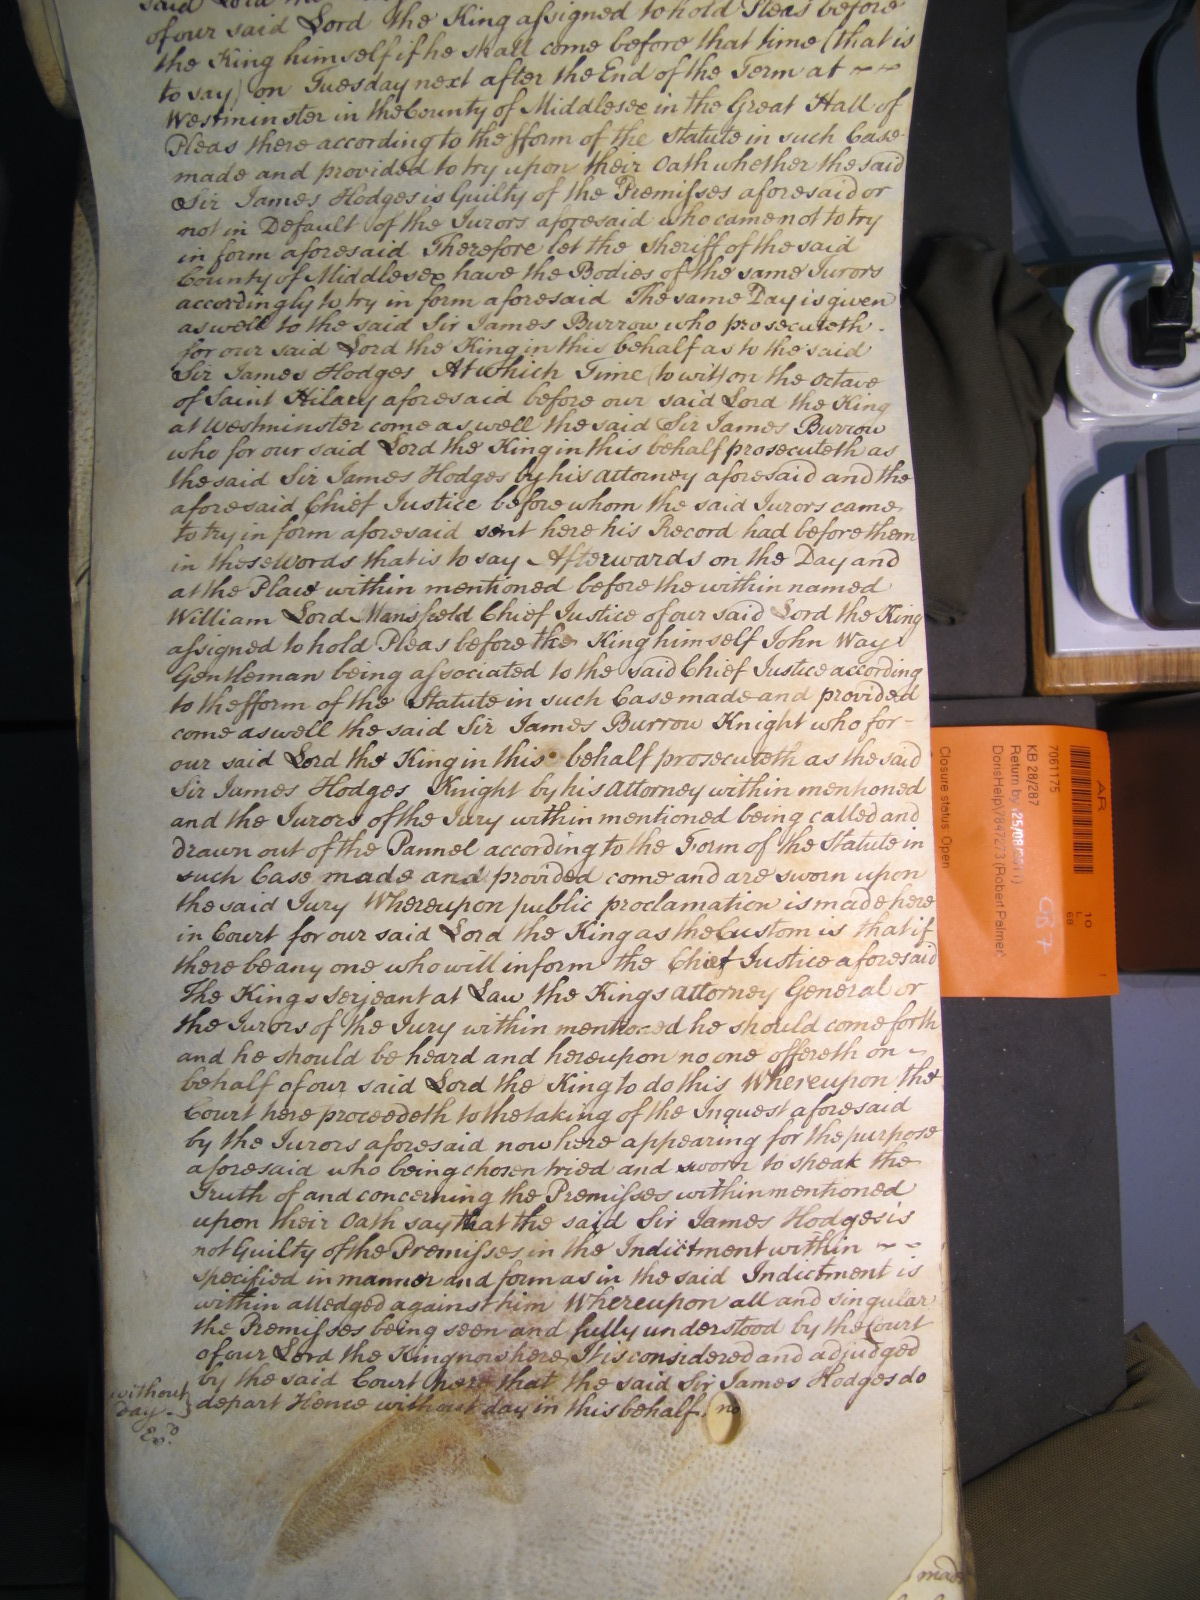 said Lord the
of our said Lord the King assigned to hold Pleas before
the King himself if he shall come before that time (that is
to say) on Tuesday next after the End of the Term at ~ ~
Westminster in the County of Middlesex in the Great Hall of
Pleas there according to the fform of the Statute in such Case
made and provided to try upon their Oath whether the said
Sir James Hodges is Guilty of the Premisses aforesaid or
not in Default of the Jurors aforesaid who came not to try
in form aforesaid Therefore let the Sheriff of the said
County of Middlesex have the Bodies of the same Jurors
accordingly to try in form aforesaid The same Day is given
as well to the said Sir James Burrow who prosecuteth -
for our said Lord the King in this behalf as to the said
Sir James Hodges At which Time (to wit) on the Octave
of Saint Hilary aforesaid before our said Lord the King
at Westminster come as well the said Sir James Burrow
who for our said Lord the King in this behalf prosecuteth as
the said Sir James Hodges by his Attorney aforesaid and the
aforesaid Chief Justice before whom the said Jurors came
to try in form aforesaid sent here his Record had before them
in these Words that is to say Afterwards on the Day and
at the Place within mentioned before the within named
William Lord Mansfield Chief Justice of our said Lord the King
assigned to hold Pleas before the King himself John Way
Gentleman being associated to the said Chief Justice according
to the fform of the Statute in such Case made and provided
come as well the said Sir James Burrow Knight who for -
our said Lord the King in this behalf prosecuteth as the said
Sir James Hodges Knight by his Attorney within mentioned
and the Jurors of the Jury within mentioned being called and
drawn out of the Pannel according to the Form of the Statute in
such Case made and provided come and are sworn upon
the said Jury Whereupon public proclamation is made here
in Court for our said Lord the King as the Custom is that if
there be any one who will inform the Chief Justice aforesaid
The Kings Serjeant at Law the Kings Attorney General or
the Jurors of the Jury within mentioned he should come forth
and he should be heard and hereupon no one offereth on ~
behalf of our said Lord the King to do this Whereupon the
Court here proceedeth to the taking of the Inquest aforesaid
by the Jurors aforesaid now here appearing for the purpose
aforesaid who being chosen tried and sworn to speak the
Truth of and concerning the Premisses within mentioned
upon their Oath say that the said Sir James Hodges is
not Guilty of the Premisses in the Indictment within ~ ~
specified in manner and form as in the said Indictment is
within alledged against him Whereupon all and singular
the Premisses being seen and fully understood by the Court
of our Lord the King now here It is considered and adjudged
by the said Court here that the said Sir James Hodges do
without
day
depart Hence without day in this behalf. no
made
AR
7061175
KB 28/287
Return by (25/08/2011)
DorisHelp\7847273 (Robert Palmer)
Closure status: Open
10
L
68